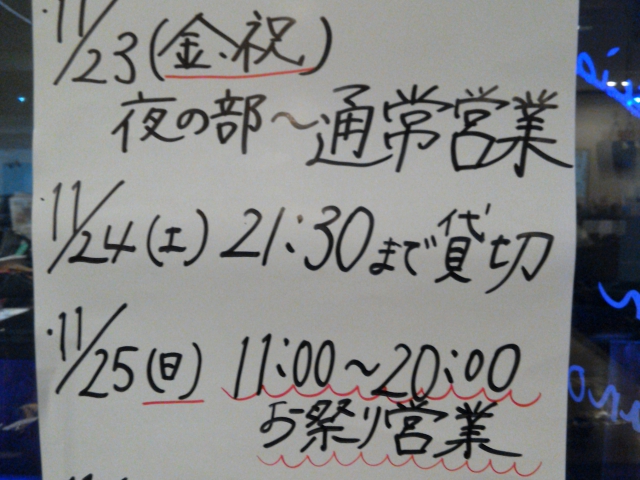 ・11/23(金、祝)
夜の部〜通常営業
・11/24(土) 21:30まで貸切
・11/25(日) 11:00〜20:00
お祭り営業